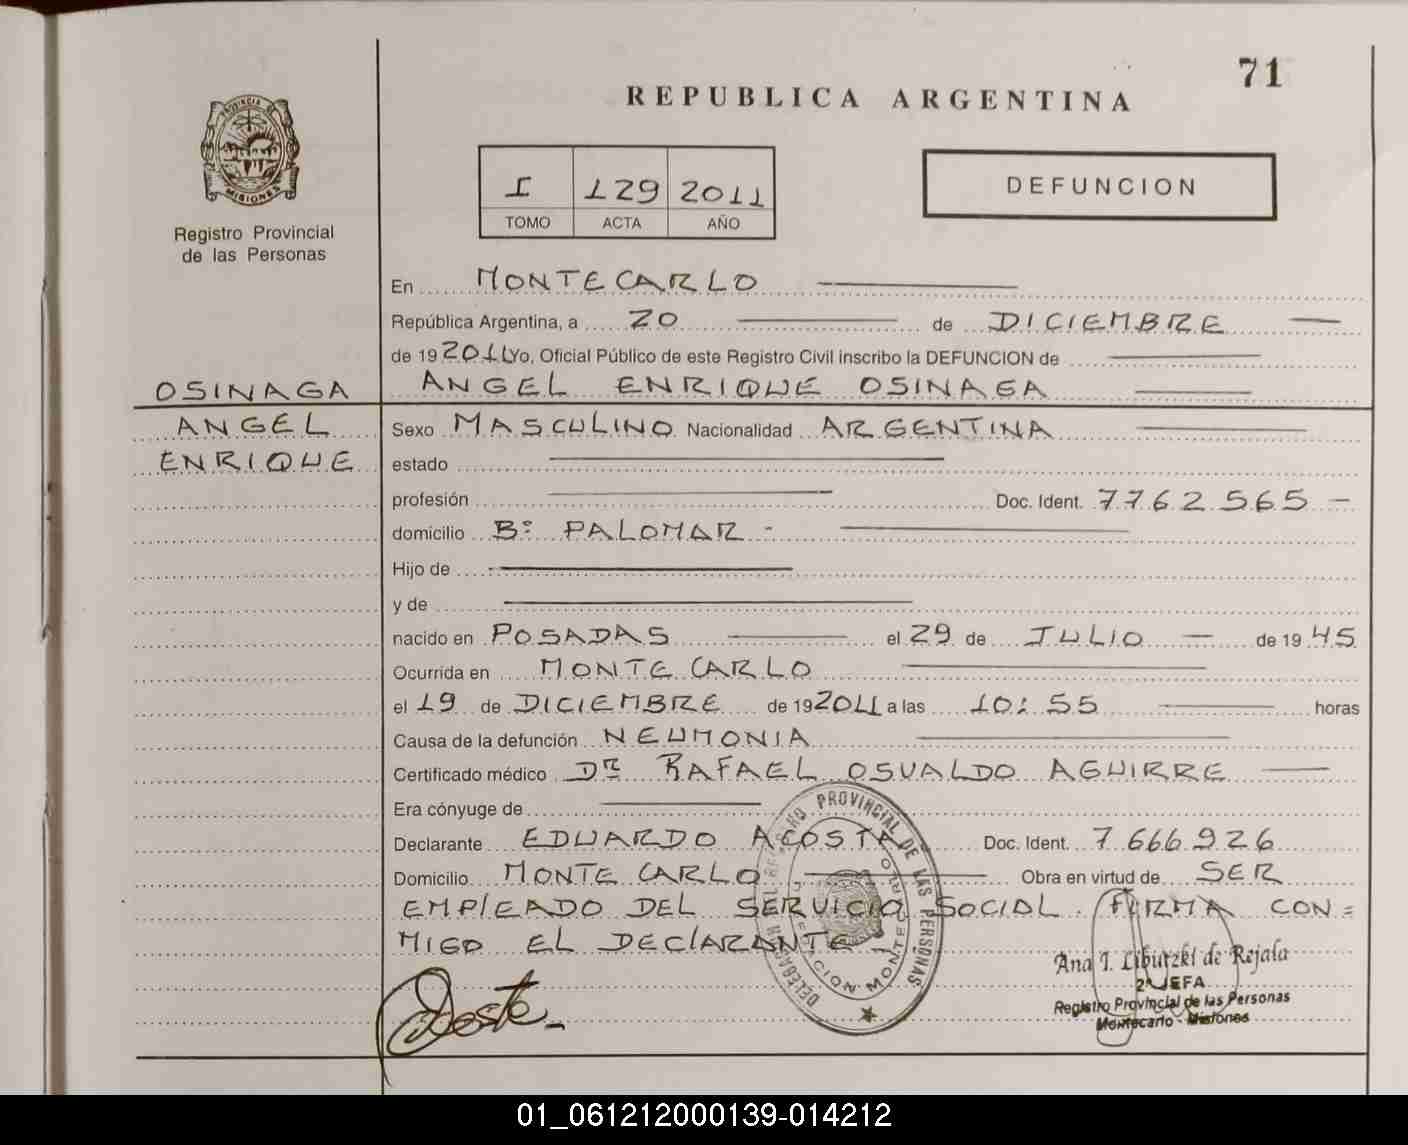 71
REPUBLICA ARGENTINA
PROVINCIA DE
MISIONES
Registro Provincial
de las Personas
I 129 2011
TOMO ACTA AÑO
DEFUNCION
En MONTECARLO
República Argentina, a 20 de DICIEMBRE
de 19 2011 Yo, Oficial Público de este Registro Civil inscribo la DEFUNCION de
OSINAGA ANGEL ENRIQUE OSINAGA
ANGEL Sexo MASCULINO Nacionalidad ARGENTINA
ENRIQUE estado
profesión Doc. Ident. 7762565 -
domicilio Bº PALOMAR -
Hijo de
y de
nacido en POSADAS el 29 de JULIO de 19 45
Ocurrida en MONTECARLO
el 19 de DICIEMBRE de 19 2011 a las 10:55 horas
Causa de la defunción NEUMONIA
Certificado médico Dr RAFAEL OSVALDO AGUIRRE
Era cónyuge de
Declarante EDUARDO ACOSTA Doc. Ident. 7666926
Domicilio MONTECARLO Obra en virtud de SER
EMPLEADO DEL SERVICIO SOCIAL. FIRMA CON=
MIGO EL DECLARANTE -
PROVINCIAL DE LAS PERSONAS
Ana I. Liburzki de Rejala
2º JEFA
Registro Provincial de las Personas
Montecarlo - Misiones
01_061212000139-014212